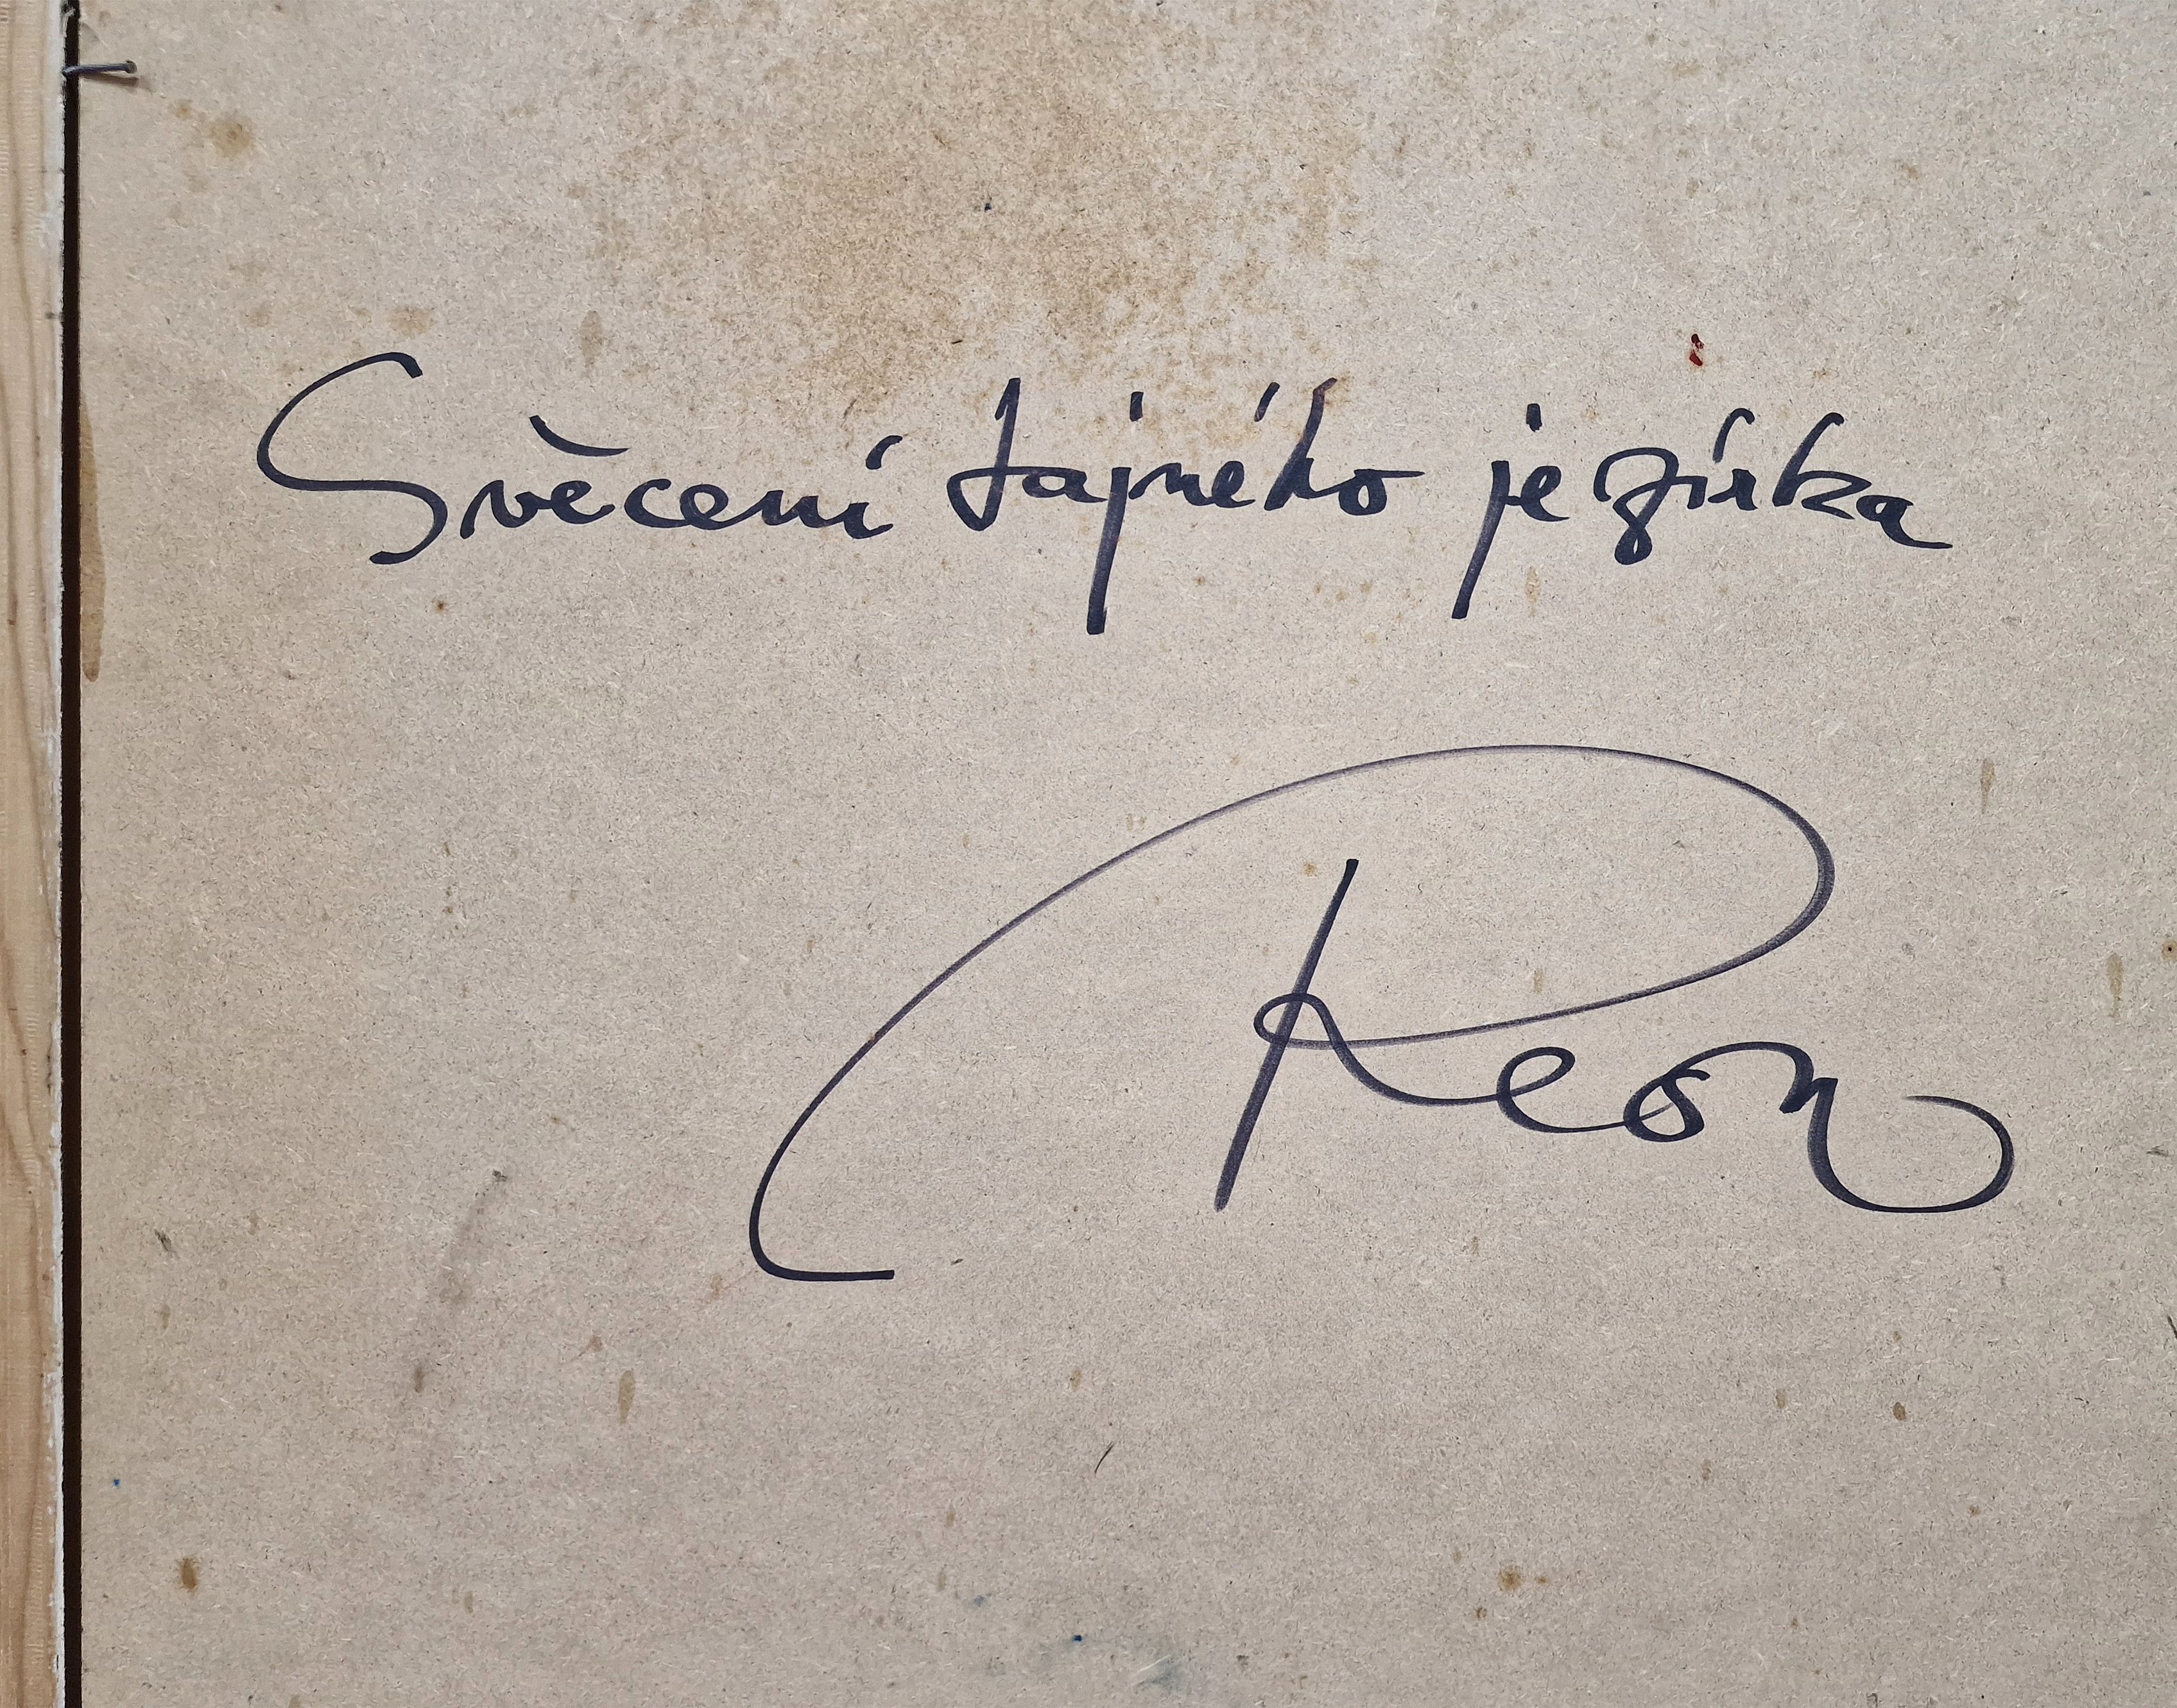 Svěcení tajného jezírka
Reon